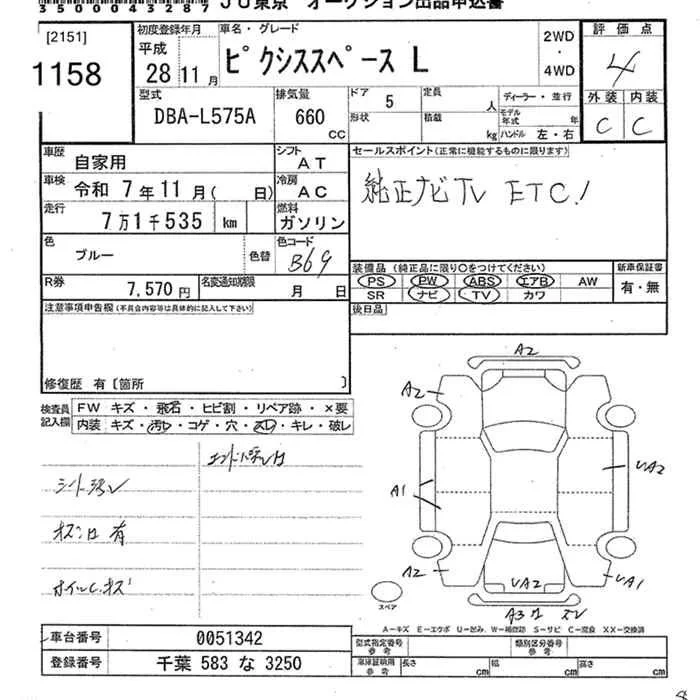 35000433287 JU東京 オークション出品申込書
[2151]
1158
初度登録年月
平成
28年11月
車名・グレード
ピクシススペース L
2WD
・
4WD
評価点
4
外装 内装
C C
型式
DBA-L575A
排気量
660
CC
ドア 5
形状
定員 人
積載 kg
ディーラー・並行
モデル年式 年
ハンドル 左・右
車歴 自家用
シフト AT
セールスポイント(正常に機能するものに限ります)
純正ナビTV ETC!
車検 令和 7年11月( 日)
冷房 AC
走行 7万1千535 km
燃料 ガソリン
色 ブルー
色替
色コード B69
装備品(純正品に限り○をつけてください)
新車保証書
PS PW ABS エアB AW
SR ナビ TV カワ
有・無
R券 7,570円
名変通知期限 月 日
後日品
注意事項申告欄(不具合内容等は具体的に記入して下さい)
修復歴 有〔箇所 〕
検査員記入欄
FW キズ・飛石・ヒビ割・リペア跡・×要
内装 キズ・汚レ・コゲ・穴・スレ・キレ・破レ
オスンロ 有
A2
A2
A1
UA2
A2
UA2
UA1
スペア
A-キズ E-エクボ U-凹み W-補修跡 S-サビ C-腐食 XX-交換済
車台番号 0051342
型式指定番号 参考
類別区分番号 参考
登録番号 千葉 583 な 3250
車庫証明用 参考 長さ cm 幅 cm 高さ cm